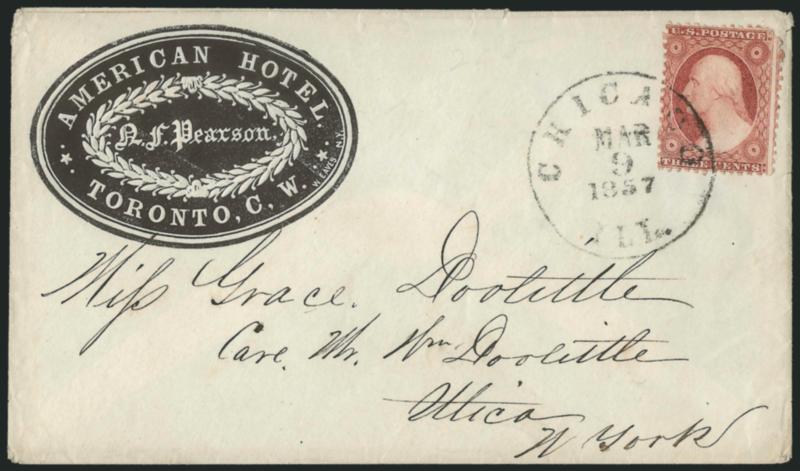 AMERICAN HOTEL
A. F. Pearson.
TORONTO, C. W.
W. EAVES N.Y.
U.S. POSTAGE
THREE CENTS
CHICAGO
MAR
9
1857
ILL.
Miſs Grace. Doolittle
Care. Mr. Wm Doolittle
Utica
N York